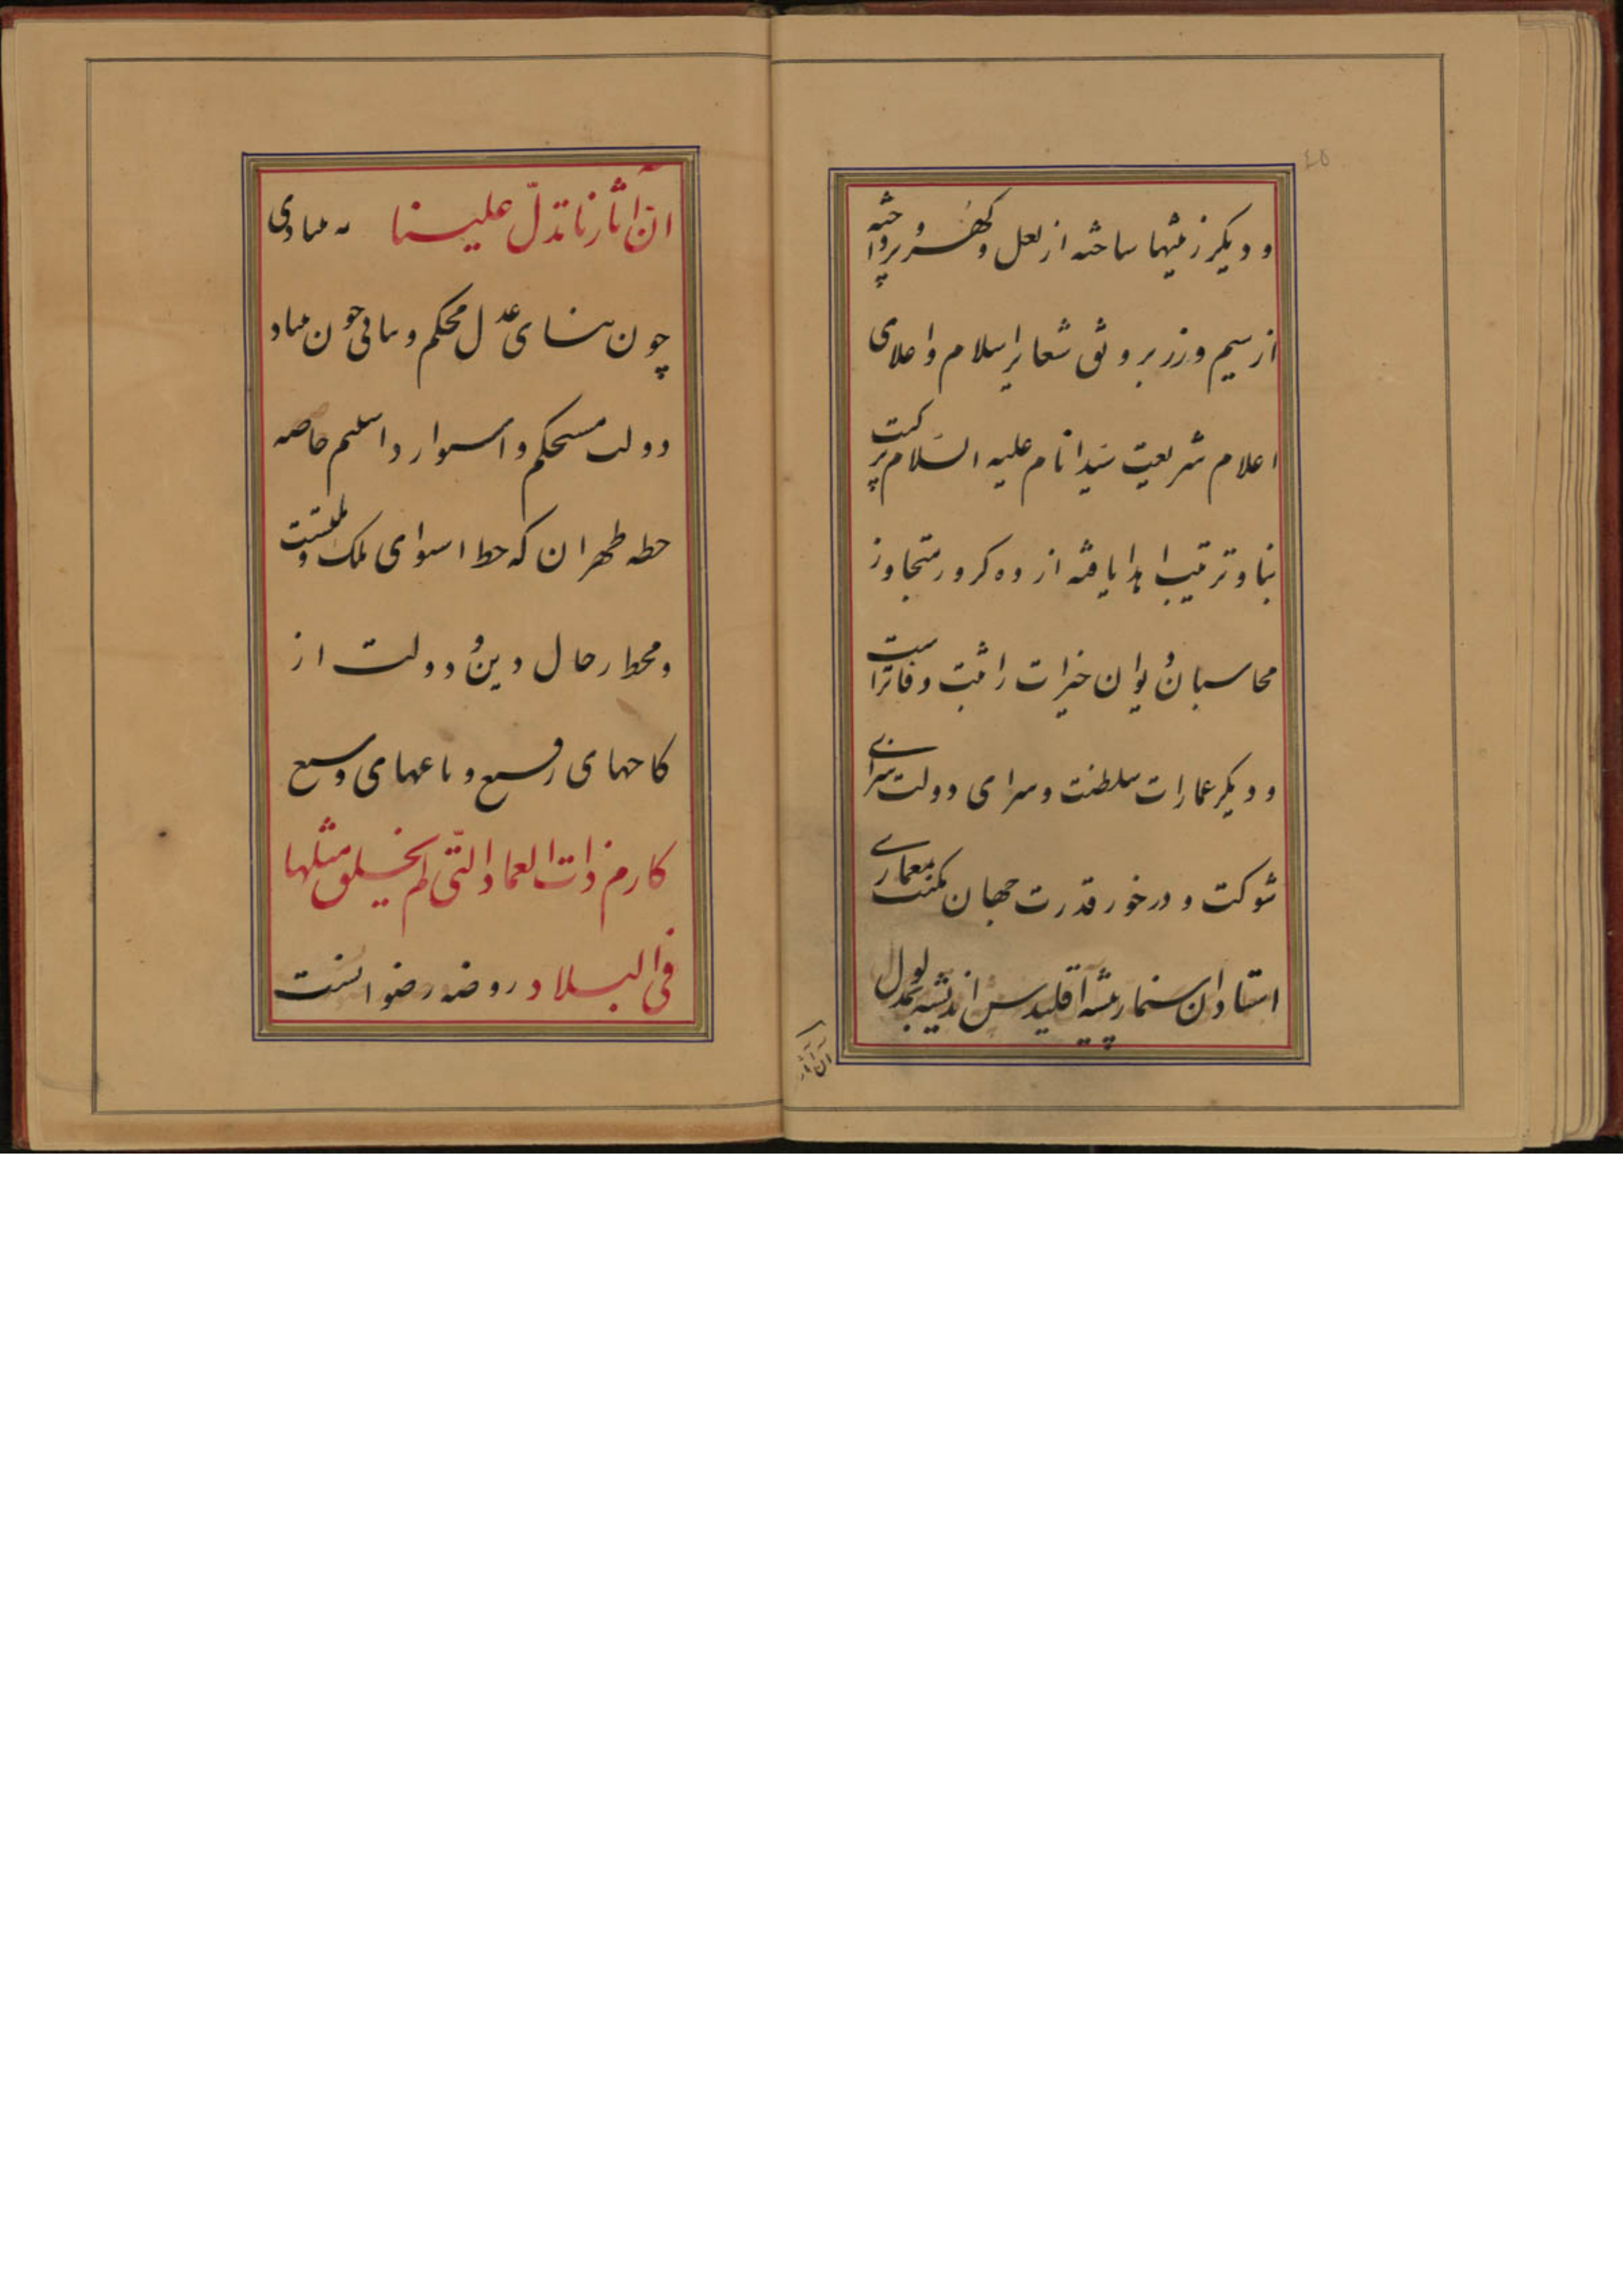 ٤٥
و دیکر زینتها ساخته از لعل و کهر و پرداخته
از سیم و زر بر وفق شعایر اسلام و اعلای
اعلام شریعت سید انام علیه السلام برکت
بنا و ترتیب اهدا یافته از ده کرور متجاوز
محاسبان دیوان خیرات را ثبت دفاتر است
و دیکر عمارات سلطنت و سرای دولت سزای
شوکت و درخور قدرت جهان مکنت معماری
استادان سنمار پیشه اقلیدس اندیشه بمدلول
ان آثار
ان آثارنا تدلّ علینا مبادی
چون بنای عدل محکم و مبانی چون
دولت مستحکم و استوار داشتیم خاصه
خطه طهران که خط استوای ملک و ملتست
و محط رحال دین و دولت از
کاخهای رفیع و باغهای وسیع
کارم ذات العماد الّتی لم یخلق مثلها
فی البلاد روضه رضوانست